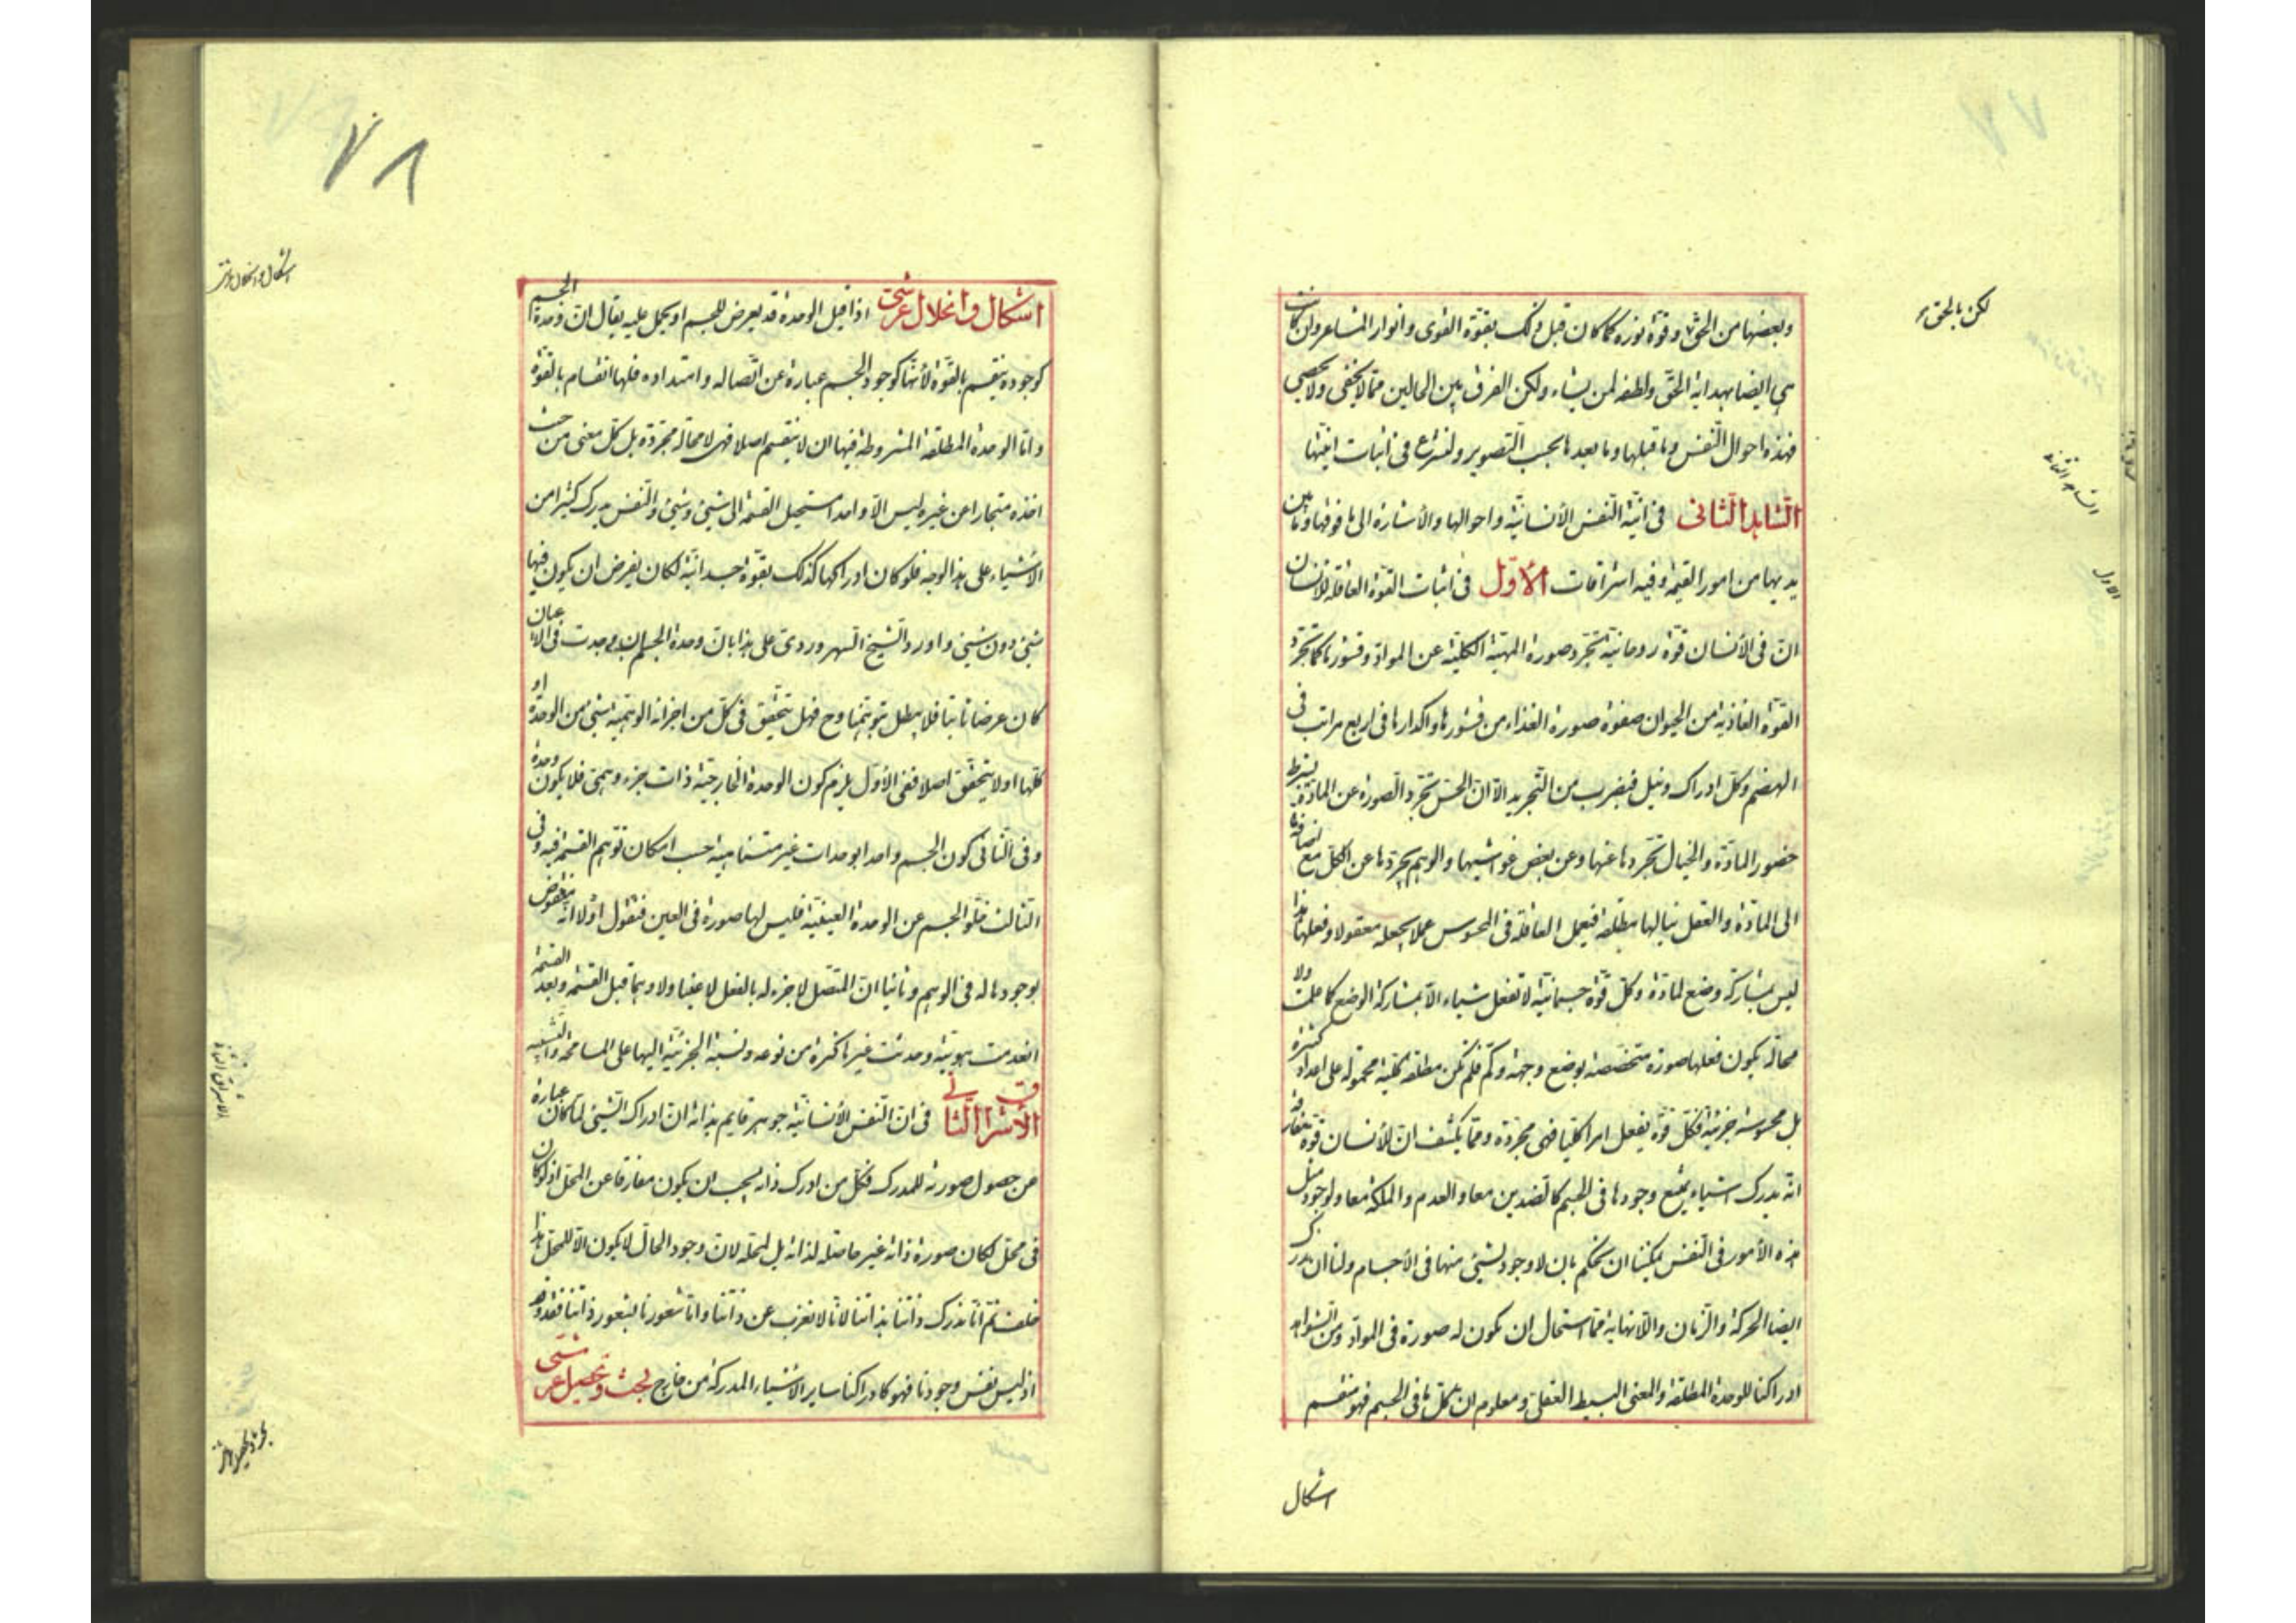 وبعضها من الحق وقوة نوره كما كان قبل ذلك بقوة القوى وانوار المشاعر وان كانت
هي ايضا بهداية الحق ولطفه لمن يشاء ولكن الفرق بين الحالين مما لا يخفى ولا يحصى
فهذه احوال النفس وما قبلها وما بعدها بحسب التصوير ولنشرع في اثبات انيتها
الشاهد الثانى في انية النفس الأنسانية واحوالها والأشارة الى ما فوقها وما بين
يديها من امور القيمة وفيه اشراقات الأول في اثبات القوة العاقلة للانسان
ان في الأنسان قوة روحانية تجرد صورة المهية الكلية عن المواد وقشورها كما تجرد
القوة الغاذية من الحيوان صفوة صورة الغذاء من قشورها واكدارها في اربع مراتب في
الهضم وكل ادراك ونيل فبضرب من التجريد الا ان الحس تجرد الصورة عن المادة بشرط
حضور المادة والخيال تجردها عنها وعن بعض غواشيها والوهم يجردها عن الكل مع اضافة ما
الى المادة والعقل ينالها مطلقة فيعمل العاقلة في المحسوس عملا يجعله معقولا وفعلها هذا
ليس بمشاركة وضع لمادة وكل قوة جسمانية لا تفعل شيئا الا بمشاركة الوضع كما علمت ولا
محالة يكون فعلها صورة متخصصة بوضع وجهة وكم فلم تكن مطلقة كلية محمولة على اعداد كثيرة
بل محسوسة جزئية فكل قوة يفعل امرا كليا فهى مجردة ومما يكشف ان للأنسان قوة مفارقة
انه يدرك اشياء يمتنع وجودها في الجسم كالضدين معا والعدم والملكة معا ولوجود مثل
هذه الأمور في النفس يمكننا ان نحكم بان لا وجود لشيئ منها في الأجسام ولنا ان ندرك
ايضا الحركة والزمان واللانهاية مما استحال ان يكون له صورة في المواد ومن الشواهد
ادراكنا للوحدة المطلقة والمعنى البسيط العقلى ومعلوم ان كل ما في الجسم فهو منقسم
اشكال
لكن بالحق
الشاهد الثانى
الاول
٧٨
اشكال وانحلال عرشى اذا قيل الوحدة قد يعرض للجسم او يحمل عليه يقال ان وحدة الجسم
كوجوده ينقسم بالقوة لأنها كوجود الجسم عبارة عن اتصاله وامتداده فلها انقسام بالقوة
واما الوحدة المطلقة المشروطة فيها ان لا ينقسم اصلا فهى لا محالة مجردة بل كل معنى من حيث
اخذه متجارا عن غيره ليس الا واحدا مستحيل القسمة الى شيئ وشيئ والنفس يدرك كثيرا من
الأشياء على هذا الوجه فلو كان ادراكها كذلك بقوة جسدانية لكان يفرض ان يكون فيها
شيئ دون شيئ واورد الشيخ السهروردى على هذا بان وحدة الجسم ان وجدت في الاعيان
كان عرضا ثابتا فلا يبطل بتوهمنا وح فهل يتحقق في كل من اجزائه الوهمية شيئ من الوحدة او
كلها او لا يتحقق اصلا ففى الأول يلزم كون الوحدة الخارجية ذات جزء وهمى فلا يكون وحدة
وفى الثانى كون الجسم واحدا بوحدات غير متناهية حسب امكان توهم القسم فيه وفى
الثالث خلو الجسم عن الوحدة العينية فليس لها صورة في العين فنقول اولا انه منقوض
بوجودها له في الوهم وثانيا ان المتصل لا جزء له بالفعل لا عينا ولا وهما قبل القسمة وبعد القسمة
انعدمت هويته وحدثت غيرها كثرة من نوعه ونسبة الجزئية اليها على المسامحة والتشبيه
الأشراق الثانى في ان النفس الأنسانية جوهر قايم بذاته ان ادراك الشيئ لما كان عبارة
عن حصول صورته للمدرك فكل من ادرك ذاته يجب ان يكون مفارقا عن المحل اذ لو كان
في محل لكان صورة ذاته غير حاصلة لذاته بل لمحله لان وجود الحال لا يكون الا للمحل هذا
خلف ثم انا ندرك ذاتنا بذاتنا لانا لا نعزب عن ذاتنا واما شعورنا بشعور ذاتنا فقد وقد
اذ ليس نفس وجودنا فهو كادراكنا ساير الأشياء المدركة من خارج بحث وتحصيل عرشى
اشكال وانحلال عرشى
الاشراق الثانى